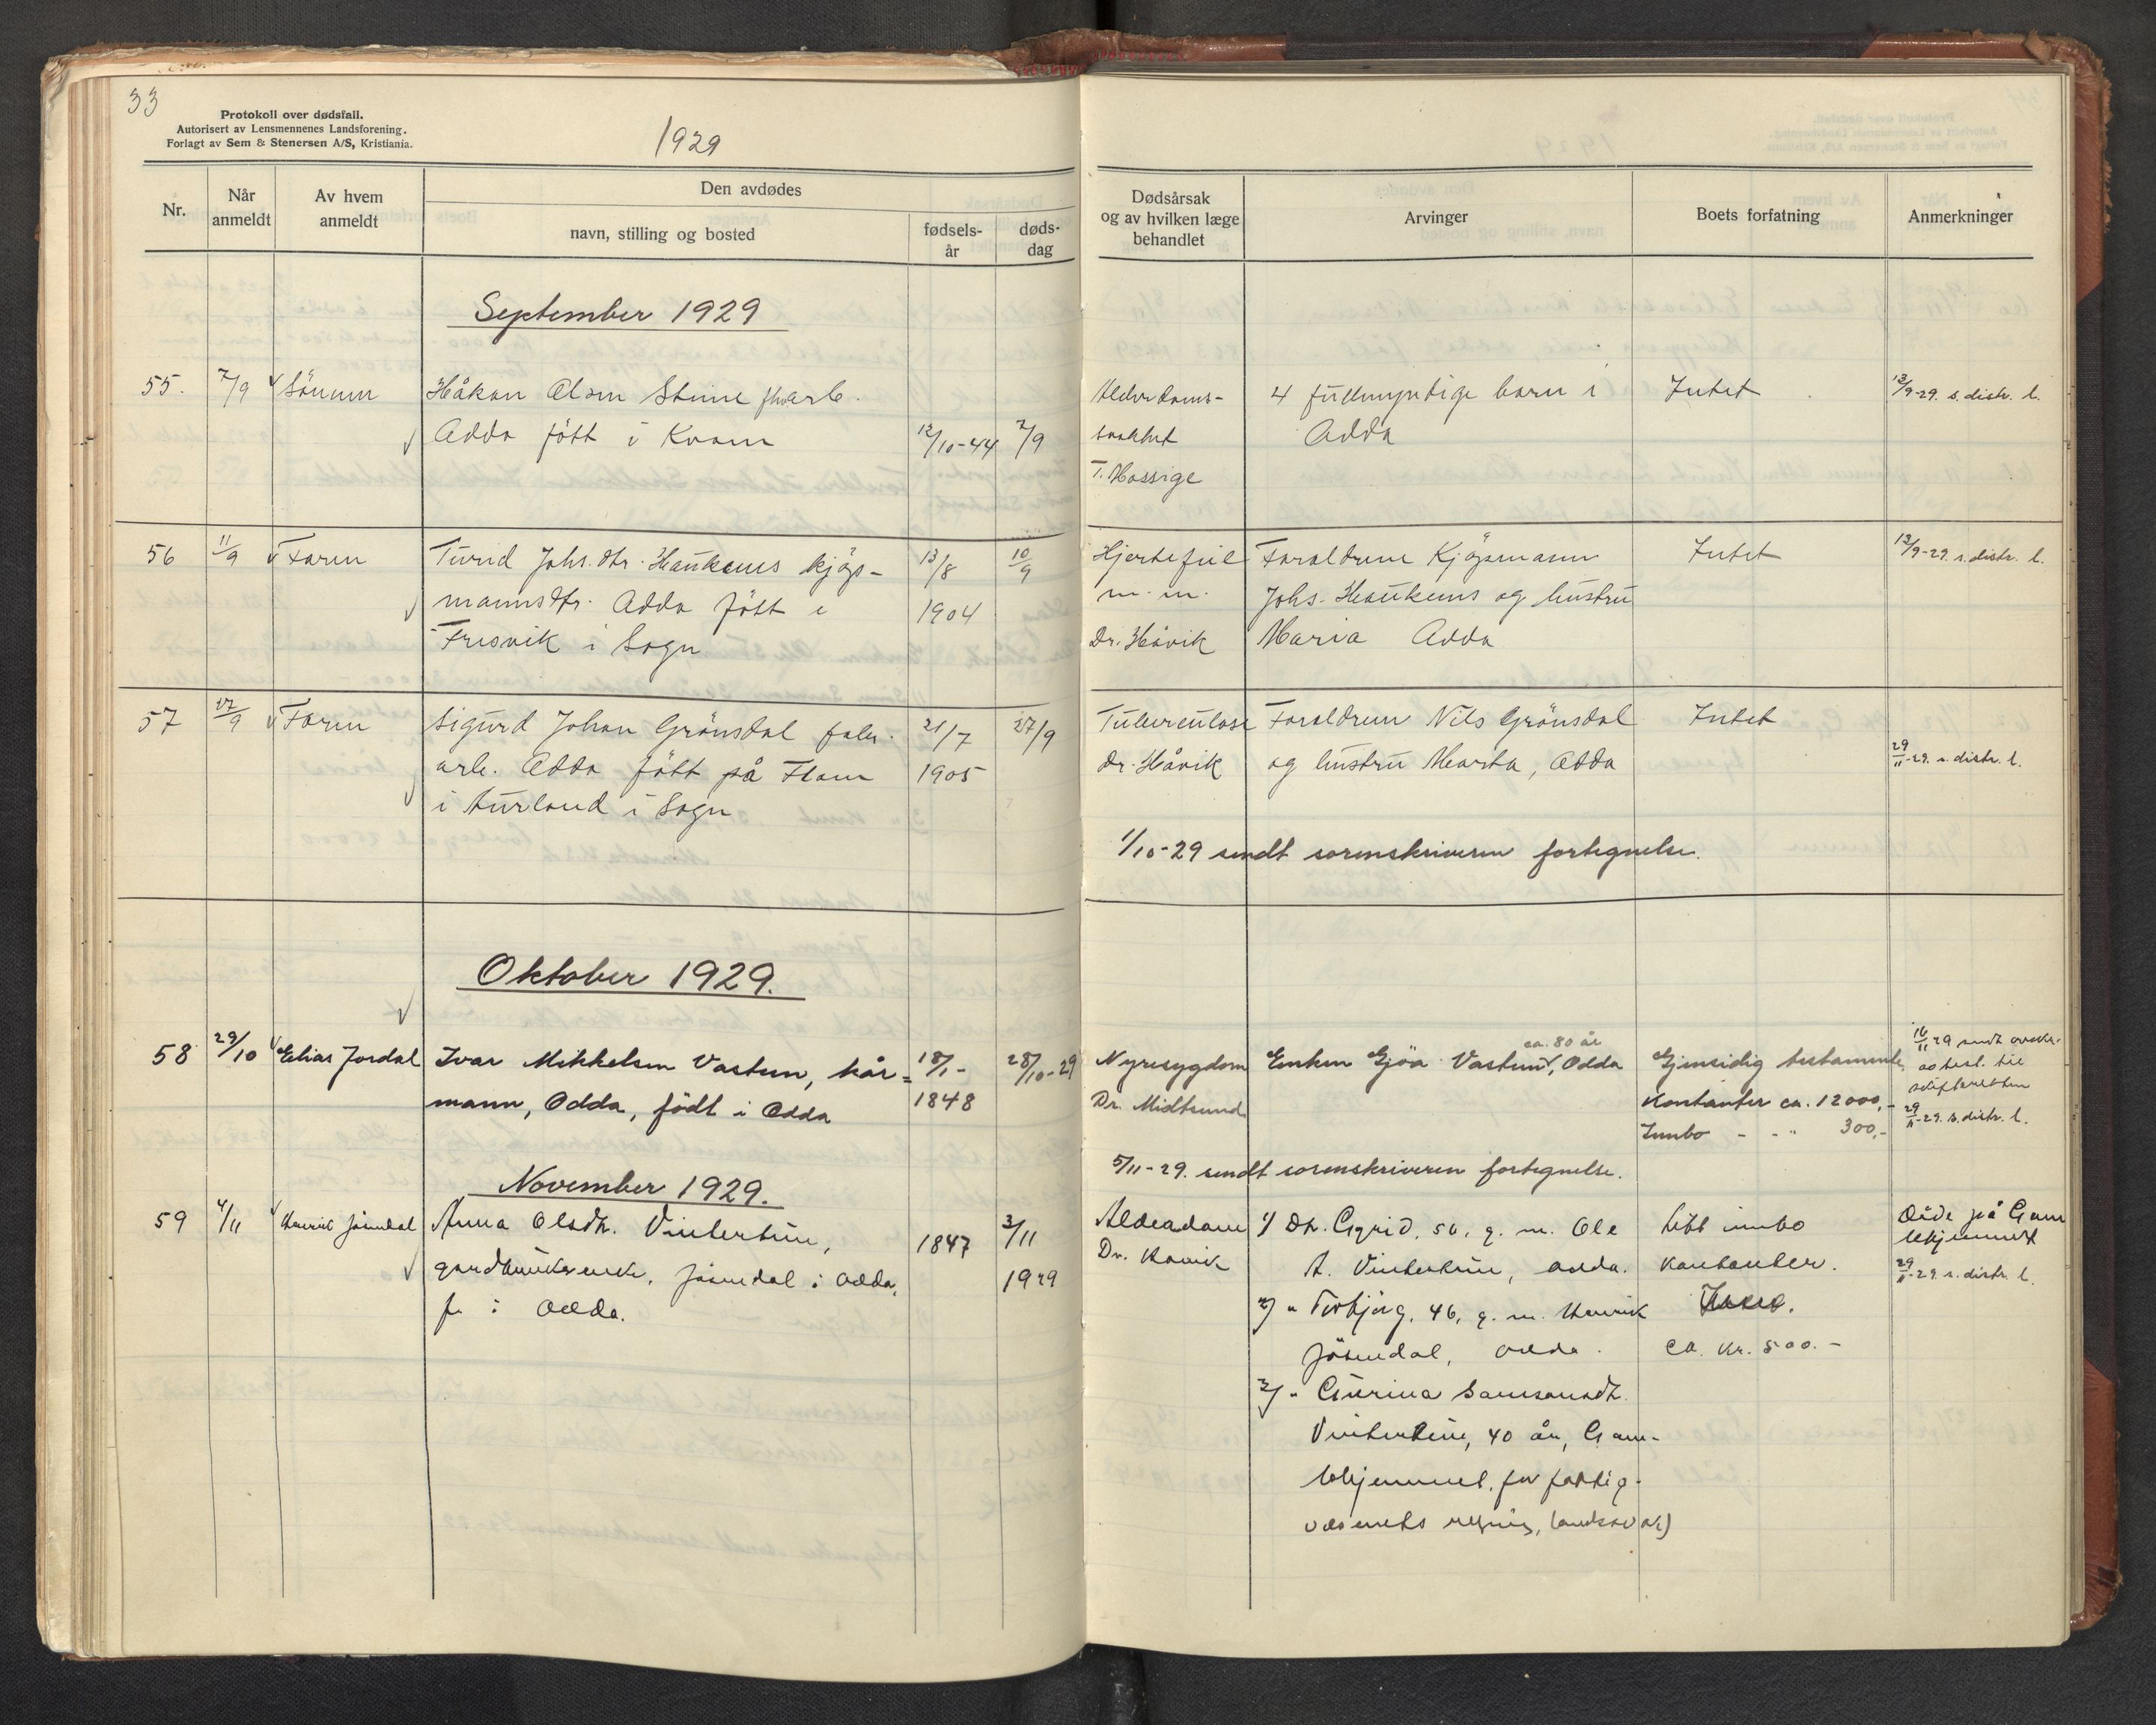 33
Protokoll over dødsfall.
Autorisert av Lensmennenes Landsforening.
Forlagt av Sem & Stenersen A/S, Kristiania.
1929
Nr.
Når anmeldt
Av hvem anmeldt
Den avdødes
navn, stilling og bosted
fødsels-år
døds-dag
Dødsårsak og av hvilken læge behandlet
Arvinger
Boets forfatning
Anmerkninger
September 1929
55. 7/9 Sönnen Håkon Olsen Steine arb. Alderdoms- 4 fullmyndige born i Intet 12/9-29. s. distr. l.
Odda fött i Kvam 12/10-44 7/9 svakhet Odda
T. Mossige
56 11/9 Faren Turid Johs. dtr. Haukenes kjöp- 13/8 10/9 Hjertefeil Foraldrene Kjöpmann Intet 12/9-29. s. distr. l.
mannsdtr. Odda fött i 1904 m.m. Johs. Haukenes og hustru
Fresvik i Sogn Dr. Håvik Maria Odda
57 27/9 Faren Sigurd Johan Grönsdal fabr. 21/7 27/9 Tuberculose Foraldrene Nils Grönsdal Intet
arb. Odda fött på Flam 1905 Dr. Håvik og hustru Marta, Odda 29/11-29. s. distr. l.
i Aurland i Sogn
1/10-29 sendt sorenskriveren fortegnelse.
Oktober 1929.
58 29/10 Elias Jordal Ivar Mikkelsen Vastun, kår= 18/1- 28/10-29 Nyresygdom Enken Gjöa Vastun, ca. 80 år Odda Gjensidig testamente 16/11 29 sendt
mann, Odda, födt i Odda 1848 Dr. Midtsund Kontanter ca. 12000,- av test. til skifteretten
Innbo - - " 300,- 29/11-29. s. distr. l.
5/11-29. sendt sorenskriveren fortegnelse.
November 1929.
59 4/11 Henrik Jösendal Anna Olsdtr. Vintertun, 3/11 Alderdom 1/ Dtr. Sigrid, 50, g. m. Ole Litt innbo Döde på Gam
gardbrukerenke, Jösendal i Odda, 1847 1929 Dr. Haavik A. Vintertun, Odda. Kontanter. lehjemmet
f. i Odda. 2/ " Torbjörg, 46, g. m. Henrik 29/11-29. s. distr. l.
Jösendal, Odda. ca. kr. 500.-
3/ " Gurina Samsonsdtr.
Vintertun, 40 år, Gam-
lehjemmet, for fattig-
vesenets regning, (åndssvak)